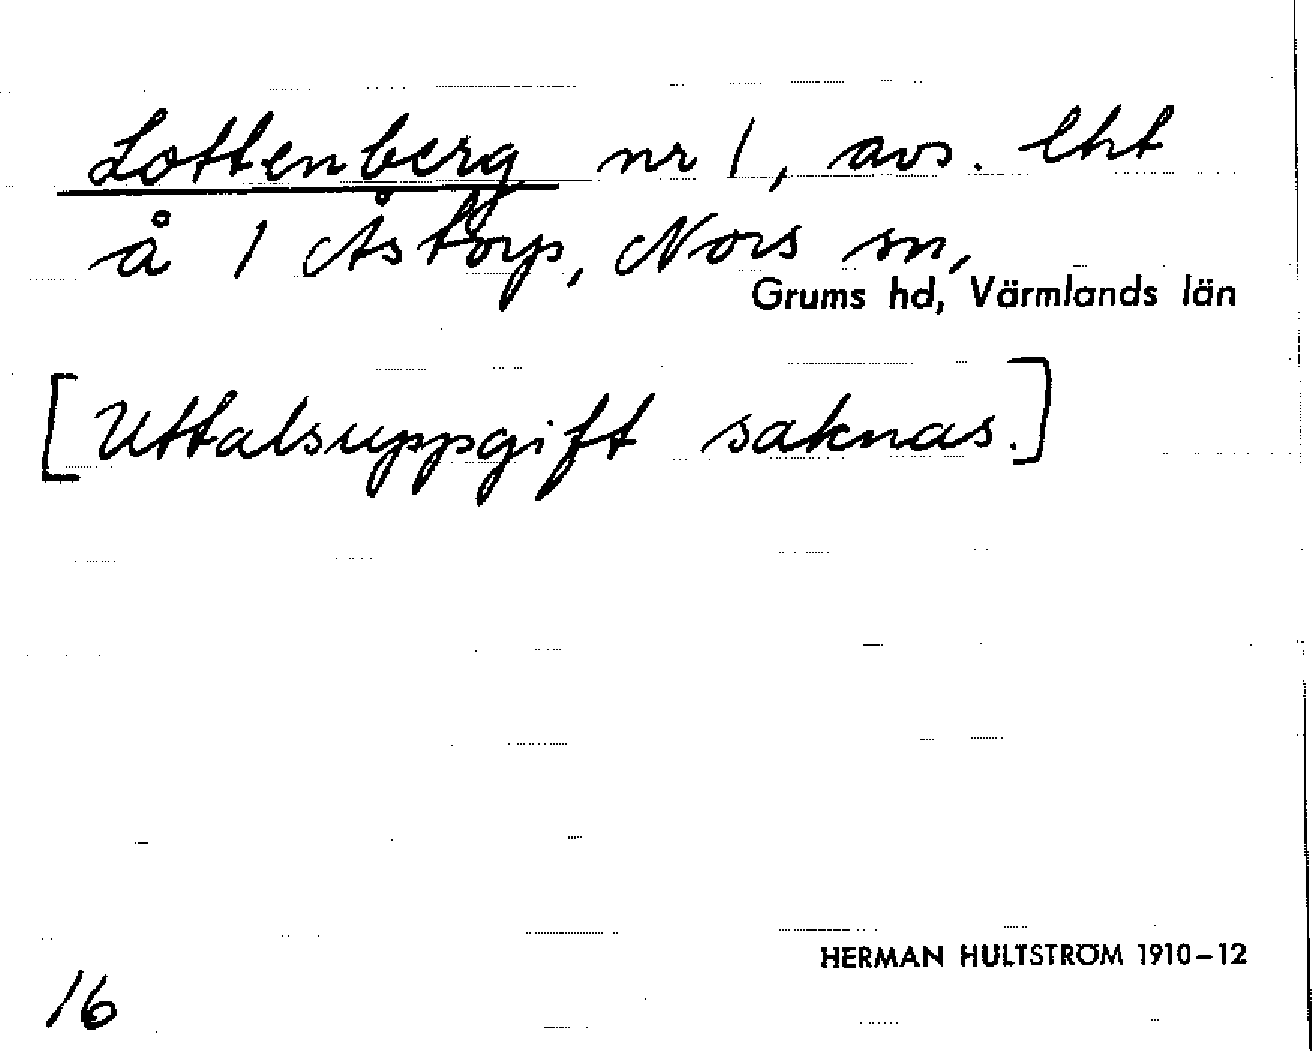 Lottenberg nr 1, avs. lht
å 1 Åstorp, Nors sn,
Grums hd, Värmlands län
[Uttalsuppgift saknas.]
HERMAN HULTSTRÖM 1910–12
16